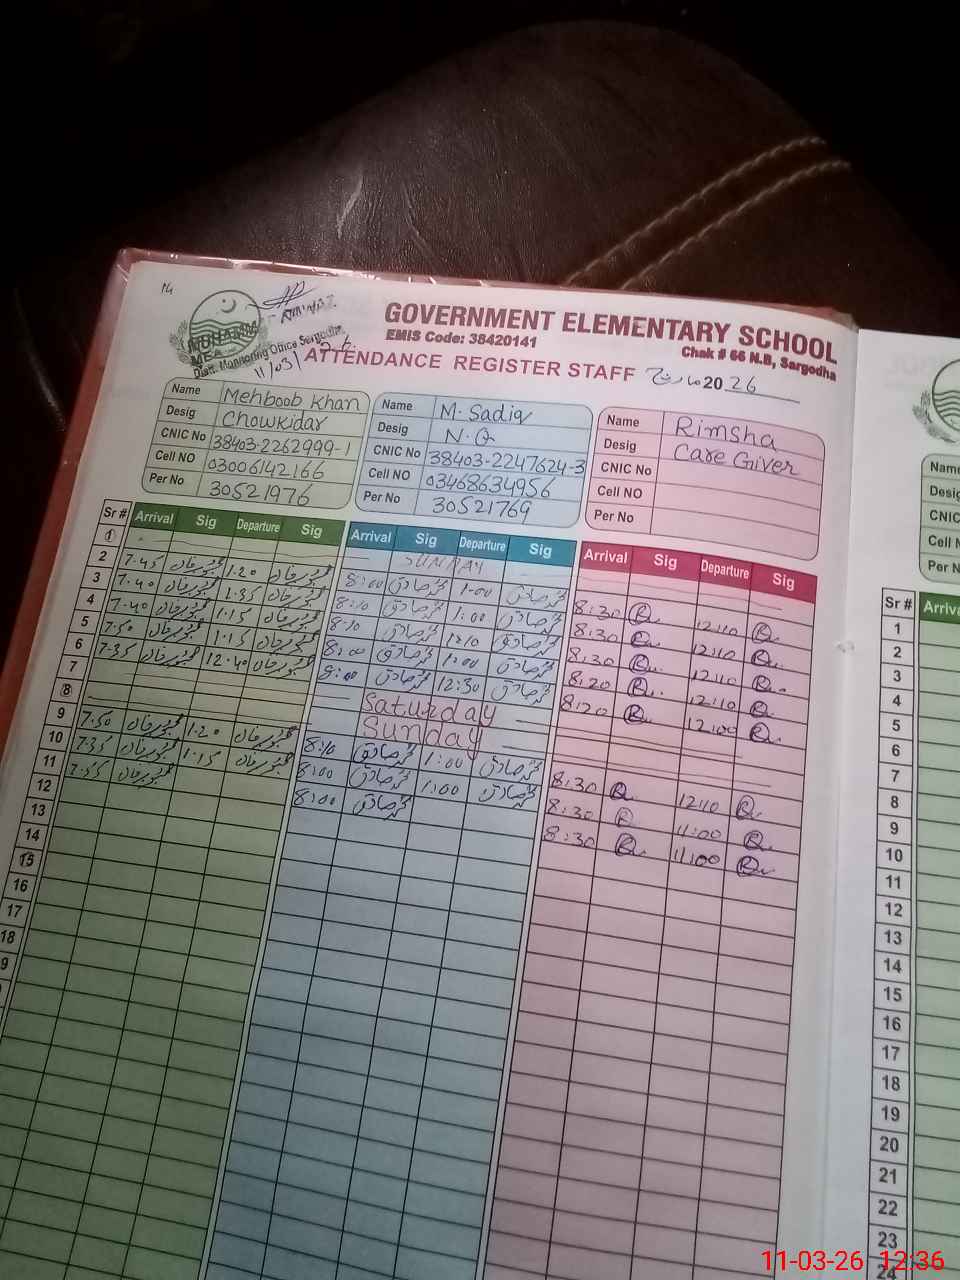 14
MUHAMM
MEA
Distt. Monitoring Office Sargodha
11/03/26
GOVERNMENT ELEMENTARY SCHOOL
EMIS Code: 38420141
Chak # 66 N.B, Sargodha
ATTENDANCE REGISTER STAFF مارچ 2026
Name Mehboob Khan
Desig Chowkidar
CNIC No 38403-2262999-1
Cell NO 03006142166
Per No 30521976
Name M. Sadiq
Desig N.Q
CNIC No 38403-2247624-3
Cell NO 03468634956
Per No 30521769
Name Rimsha
Desig Care Giver
CNIC No
Cell NO
Per No
Sr # Arrival Sig Departure Sig Arrival Sig Departure Sig Arrival Sig Departure Sig
1 SUNDAY
2 7.45 محبوب خان 1.20 محبوب خان 8:00 محمد صادق 1:00 محمد صادق 8:30 R 12:10 R
3 7.40 محبوب خان 1.35 محبوب خان 8:10 محمد صادق 1:00 محمد صادق 8:30 R 12:10 R
4 7.40 محبوب خان 1.15 محبوب خان 8:10 محمد صادق 1:10 محمد صادق 8:30 R 12:10 R
5 7.50 محبوب خان 1.15 محبوب خان 8:00 محمد صادق 1:00 محمد صادق 8:20 R 12:10 R
6 7.35 محبوب خان 12.40 محبوب خان 8:00 محمد صادق 12:30 محمد صادق 8:20 R 12:00 R
7 Saturday
8 Sunday
9 7.50 محبوب خان 1.20 محبوب خان 8:10 محمد صادق 1:00 محمد صادق 8:30 R 12:10 R
10 7.35 محبوب خان 1.15 محبوب خان 8:00 محمد صادق 1:00 محمد صادق 8:30 R 11:00 R
11 7.55 محبوب خان 8:00 محمد صادق 8:30 R 11:00 R
12
13
14
15
16
17
18
9
Name
Desig
CNIC
Cell N
Per N
Sr # Arriva
1
2
3
4
5
6
7
8
9
10
11
12
13
14
15
16
17
18
19
20
21
22
23
24
11-03-26 12:36